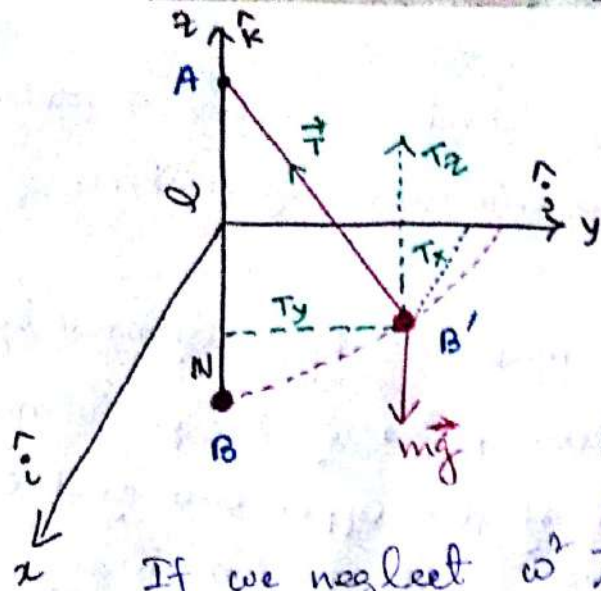 z k̂
A
T⃗
Tz
l
ĵ
y
Tx
Ty
B'
N
B
mg⃗
î
x
If we neglect ω²